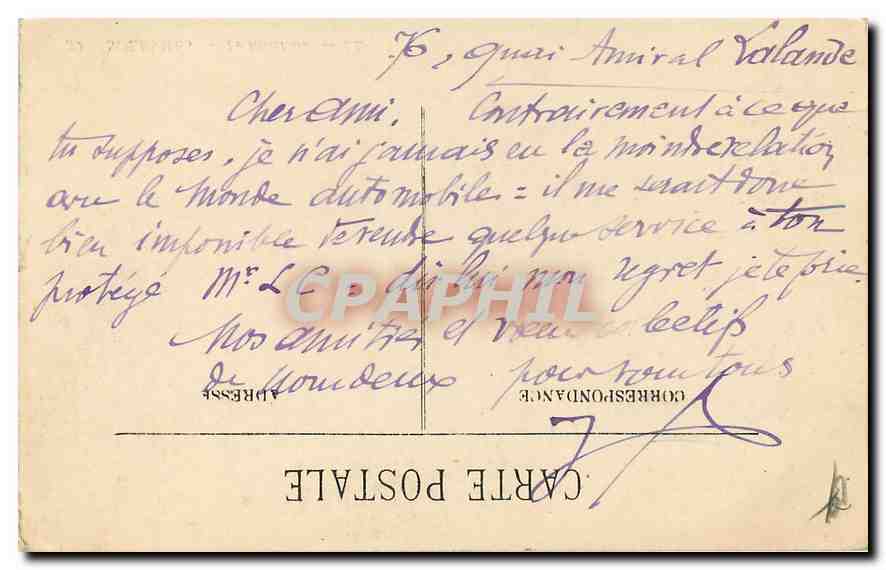 76, quai Amiral Lalande
Cher ami. Contrairement à ce que
tu supposes, je n'ai jamais eu la moindre relation
avec le monde automobile = il me serait donc
bien impossible te rendre quelque service à ton
protégé Mr L C - dis lui mon regret je te prie.
Nos amitiés et vœux collectifs
de nous deux pour vous tous
CPAPHIL
ADRESSE CORRESPONDANCE
CARTE POSTALE